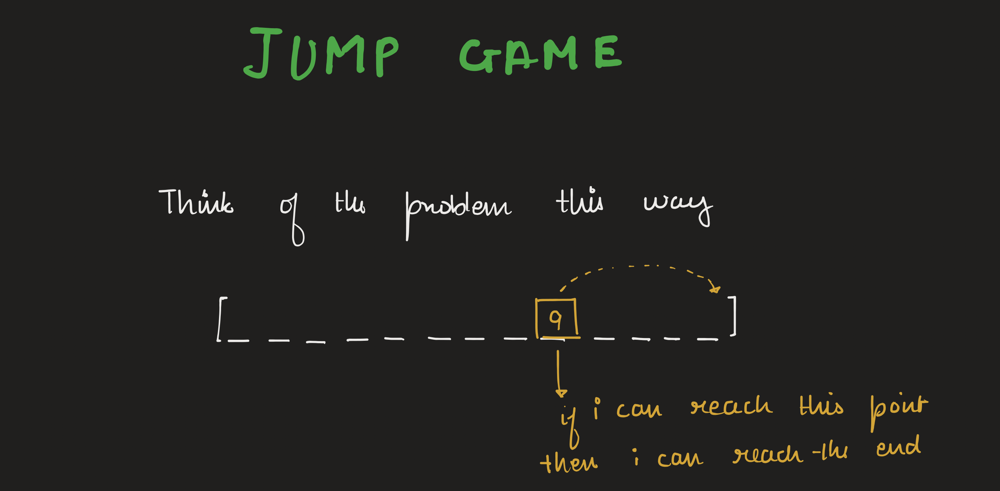 JUMP GAME
Think of the problem this way
[ 9 ]
if i can reach this point
then i can reach the end